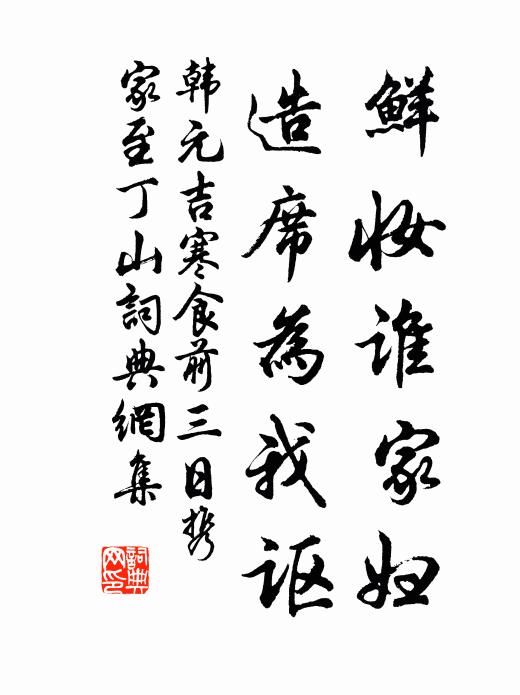 鮮妝誰家婦
造席為我讴
韩元吉寒食前三日携
家至丁山詞典網集
詞典網印